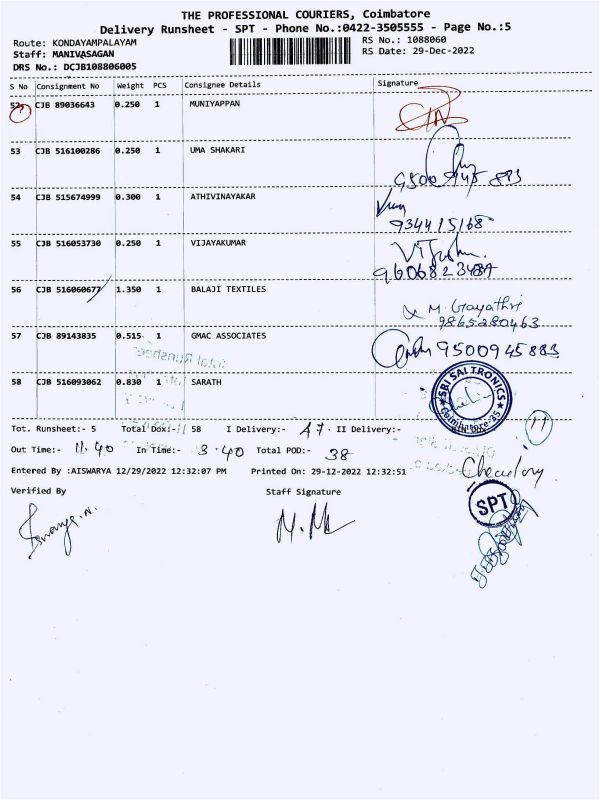 THE PROFESSIONAL COURIERS, Coimbatore
Delivery Runsheet - SPT - Phone No.:0422-3505555 - Page No.:5
Route: KONDAYAMPALAYAM
Staff: MANIVASAGAN
DRS No.: DCJB108806005
RS No.: 1088060
RS Date: 29-Dec-2022
S No Consignment No Weight PCS Consignee Details Signature
52 CJB 89036643 0.250 1 MUNIYAPPAN
53 CJB 516100286 0.250 1 UMA SHAKARI
54 CJB 515674999 0.300 1 ATHIVINAYAKAR
934415168
55 CJB 516053730 0.250 1 VIJAYAKUMAR
56 CJB 516060677 1.350 1 BALAJI TEXTILES
M. Gayathri
9865280463
57 CJB 89143835 0.515 1 GMAC ASSOCIATES
9500945883
58 CJB 516093062 0.830 1 SARATH
SRI SAI TRONICS
Coimbatore-35
Tot. Runsheet:- 5 Total Dox:- 58 I Delivery:- 47 II Delivery:- 11
Out Time:- 11.40 In Time:- 3.40 Total POD:- 38
Entered By :AISWARYA 12/29/2022 12:32:07 PM Printed On: 29-12-2022 12:32:51
Verified By Staff Signature
SPT